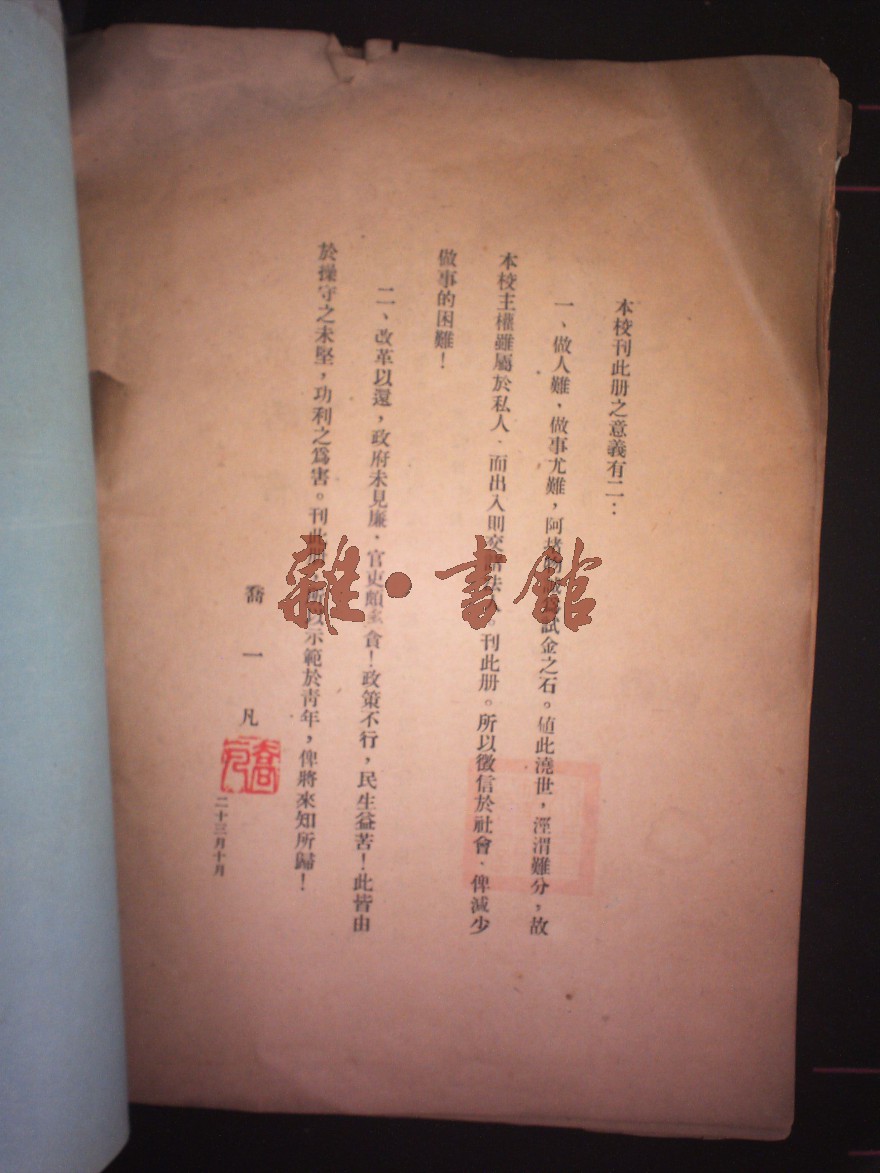 本校刊此册之意義有二：
一、做人難、做事尤難，阿堵物試金之石。値此澆世，涇渭難分，故
本校主權雖屬於私人．而出入則交法人。刊此册。所以徵信於社會．俾減少
做事的困難！
二、改革以還，政府未見廉．官吏頗貪！政策不行，民生益苦！此皆由
於操守之未堅，功利之爲害。刊此示範於靑年，俾將來知所歸！
喬一凡
二十三月十月
雜·書館